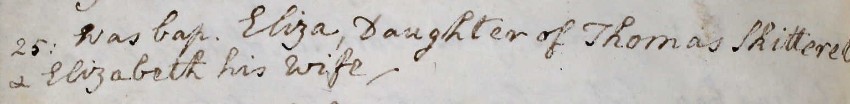 25: was bap. Eliza, Daughter of Thomas Skitterel
& Elizabeth his Wife